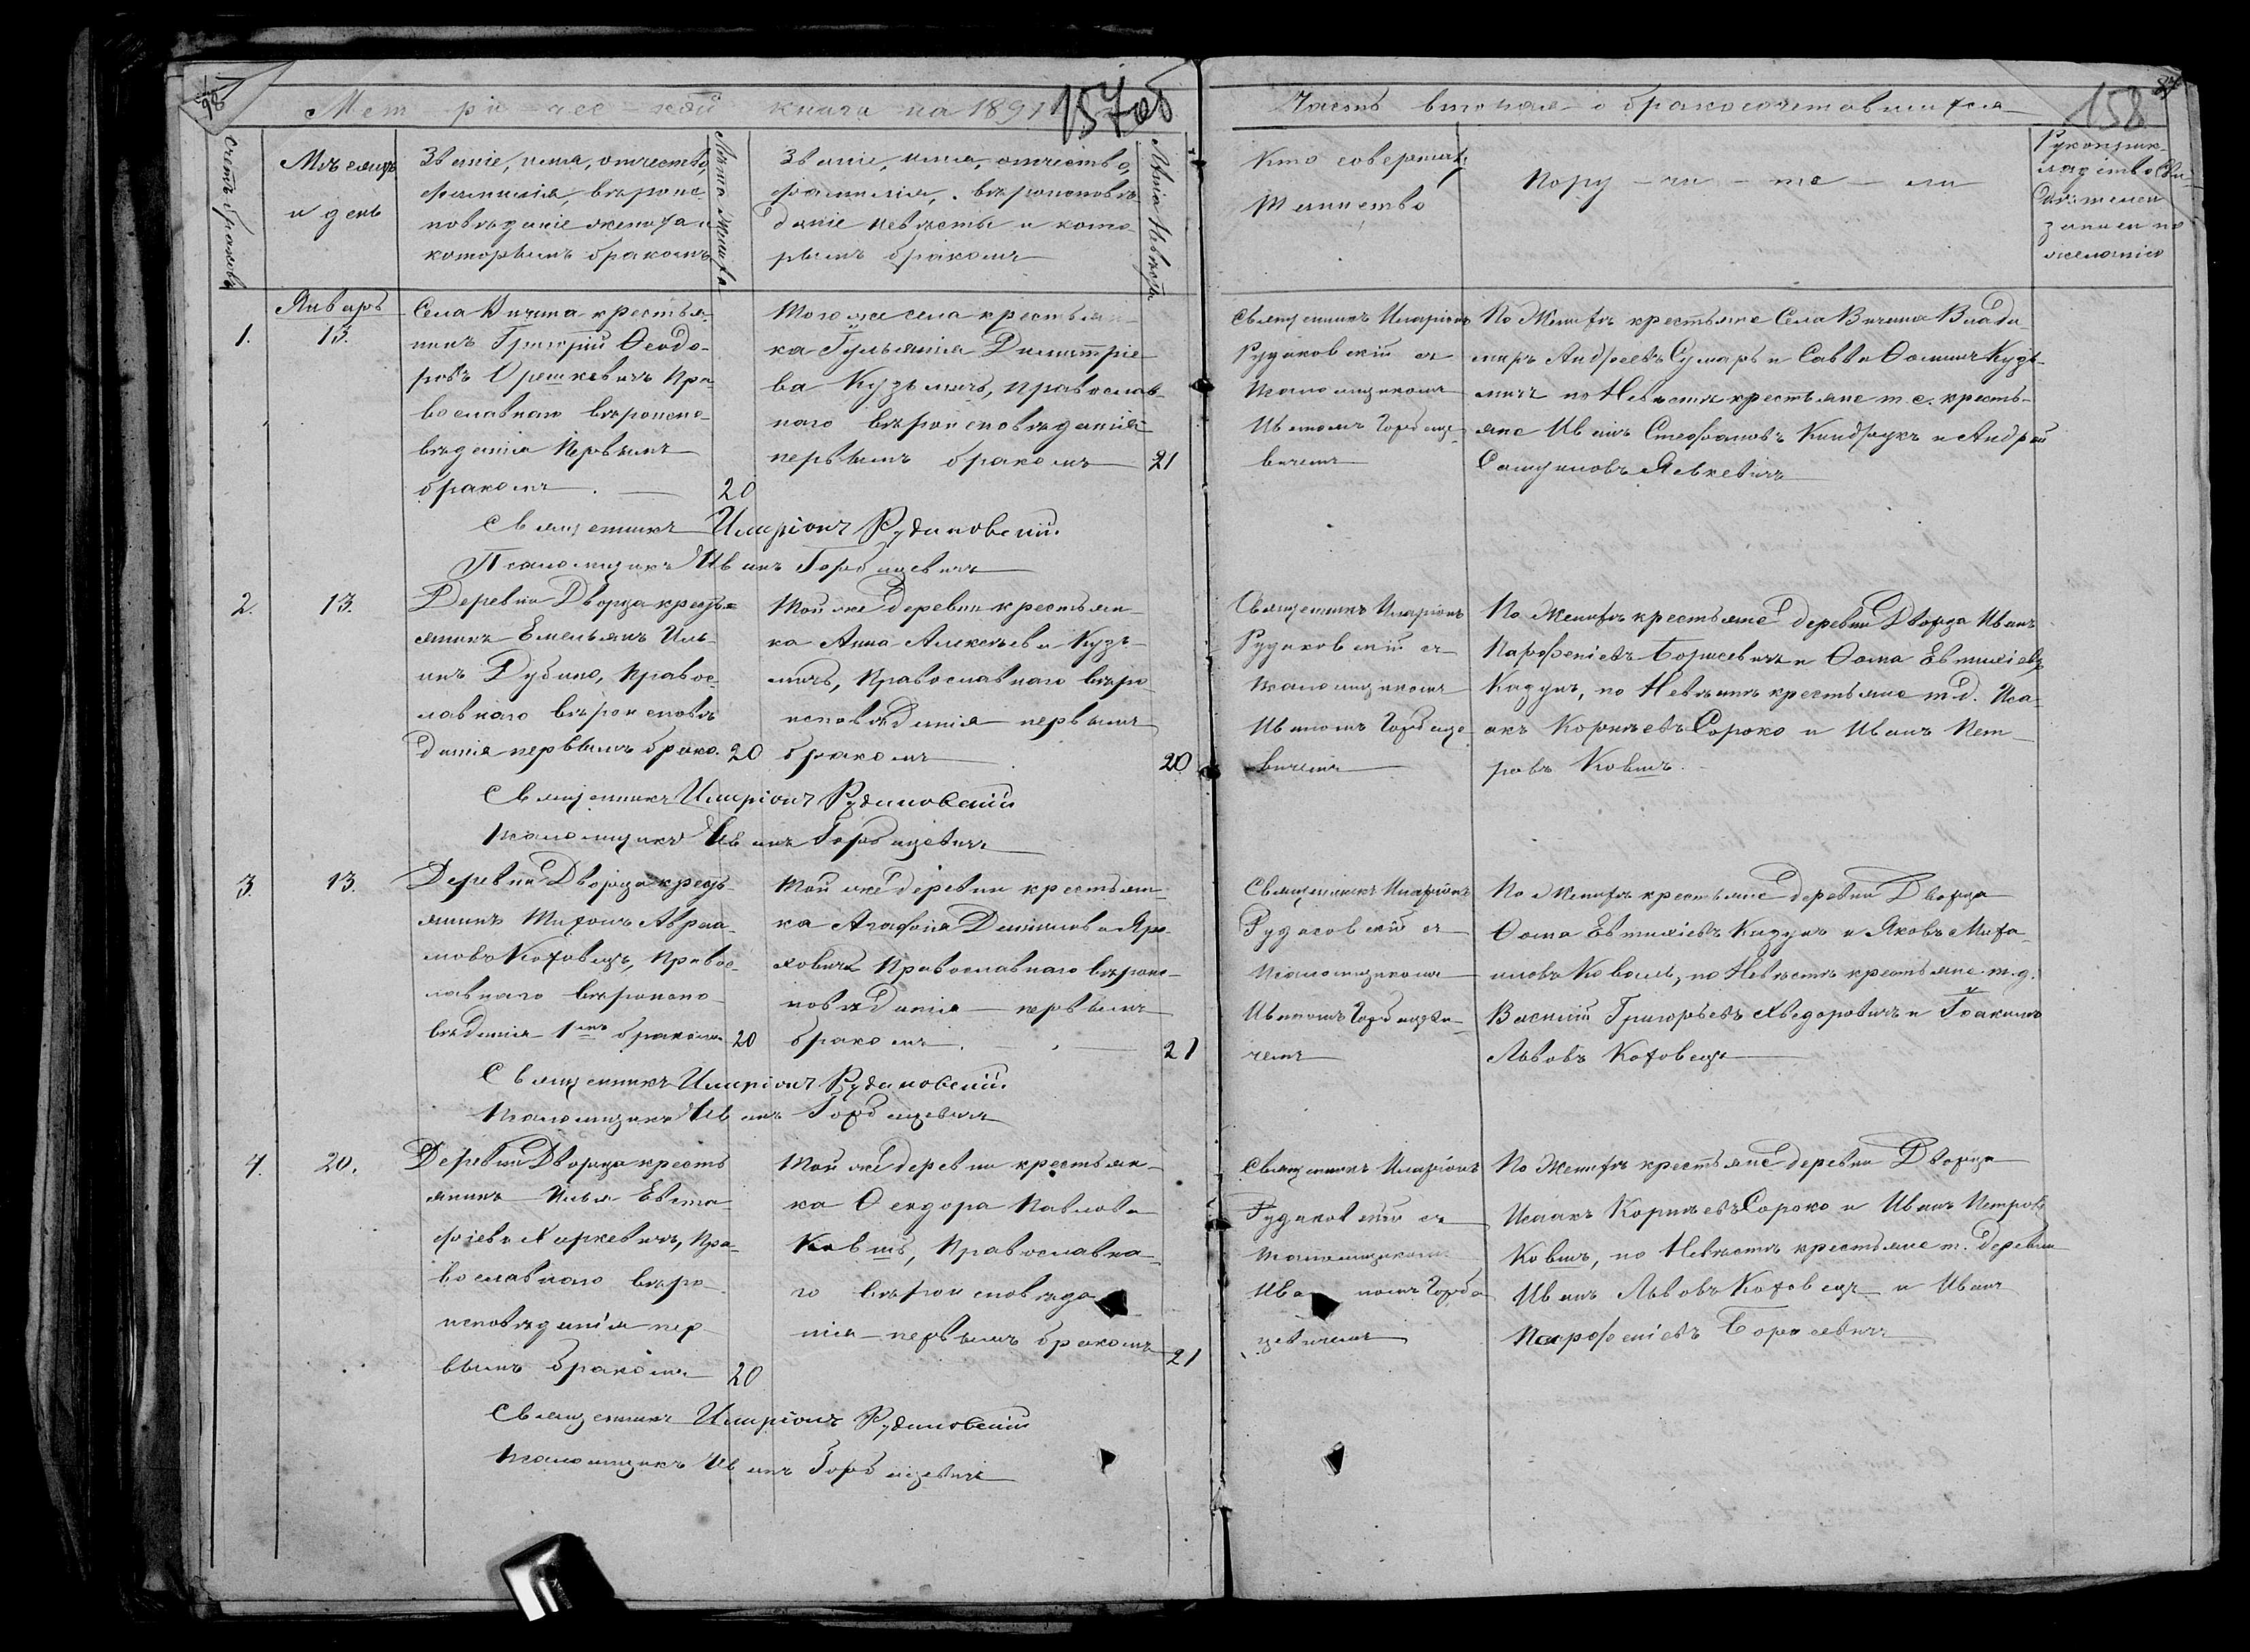 Метрической книги на 1891
157об
Часть вторая о бракосочетавшихся
158
98
Счетъ браковъ
Мѣсяцъ
и день
Званіе, имя, отчество,
фамилія, вѣроис
повѣданіе жениха и
которымъ бракомъ
Лѣта жениха
Званіе, имя, отчество,
фамилія, вѣроисповѣ
даніе невѣсты и кото
рымъ бракомъ
Лѣта невѣсты
Кто совершалъ
Таинство
Поручители
Рукоприк
ладство сви
дѣтелей
записи по
желанію
1.
Январь
13.
Села Вичина крестья
нинъ Григорій Ѳеодо
ровъ Орешкевичъ Пра
вославнаго вѣроиспо
вѣданія Первымъ
бракомъ
20
Того же села крестьян
ка Гульянія Димитріе
ва Кузьмичъ, Православ
наго вѣроисповѣданія
первымъ бракомъ
21
Священникъ Иларіонъ
Рудаковскій съ
Псаломщикомъ
Иваномъ Горбаце
вичемъ
По Женихѣ крестьяне Села Вичина Влади
миръ Андреевъ Сумаръ и Савва Ѳоминъ Кузь
мичъ по Невѣстѣ крестьяне т. с. кресть
яне Иванъ Стефановъ Киндрукъ и Андрей
Левкевичъ
Священникъ Иларіонъ Рудаковскій
Псаломщикъ Иванъ Горбацевичъ
2.
13.
Деревни Дворца кресть
янинъ Емельянъ Иль
инъ Дубина, Правос
лавнаго вѣроисповѣ
данія первымъ брако.
20
Той же деревни крестьян
ка Анна Алексѣева Кузь
мичъ, Православнаго вѣро
исповѣданія первымъ
бракомъ
20
Священникъ Иларіонъ
Рудаковскій съ
псаломщикомъ
Иваномъ Горбаце
вичемъ
По Женихѣ крестьяне деревни Дворца Иванъ
Парфеніевъ Борисевичъ и Ѳома Евтихіевъ
Кадунъ, по Невѣстѣ крестьяне т. д. Иса
акъ Корнѣевъ Сорока и Иванъ Пет
ровъ Ковшъ
Священникъ Иларіонъ Рудаковскій
Псаломщикъ Иванъ Горбацевичъ
3.
13.
Деревни Дворца кресть
янинъ Титъ Авраа
мовъ Котовецъ, Правос
лавнаго вѣроиспо
вѣданія 1мъ бракомъ
20
Той же деревни крестьян
ка Агафія Даниилова Яро
ховичъ Православнаго вѣроис
повѣданія первымъ
бракомъ
21
Священникъ Иларіонъ
Рудаковскій съ
Псаломщикомъ
Иваномъ Горбацеви
чемъ
По Женихѣ крестьяне деревни Дворца
Ѳома Евтихіевъ Кадунъ и Яковъ Миха
иловъ Коваль, по Невѣстѣ крестьяне т. д.
Василій Григорьевъ Хведоровичъ и Іоакимъ
Львовъ Котовецъ
Священникъ Иларіонъ Рудаковскій
Псаломщикъ Иванъ Горбацевичъ
4.
20.
Деревни Дворца кресть
янинъ Илья Евста
фіевъ Харкевичъ, Пра
вославнаго вѣро
исповѣданія пер
вымъ бракомъ
20
Той же деревни крестьян
ка Ѳеодора Павлова
Ковшъ, Православна
го вѣроисповѣда
нія первымъ бракомъ
21
Священникъ Иларіонъ
Рудаковскій съ
псаломщикомъ
Иваномъ Горба
цевичемъ
По Женихѣ крестьяне деревни Дворца
Исаакъ Корнѣевъ Сорока и Иванъ Петровъ
Ковшъ, по Невѣстѣ крестьяне т. деревни
Иванъ Львовъ Котовецъ и Иванъ
Парфеніевъ Борисевичъ
Священникъ Иларіонъ Рудаковскій
Псаломщикъ Иванъ Горбацевичъ